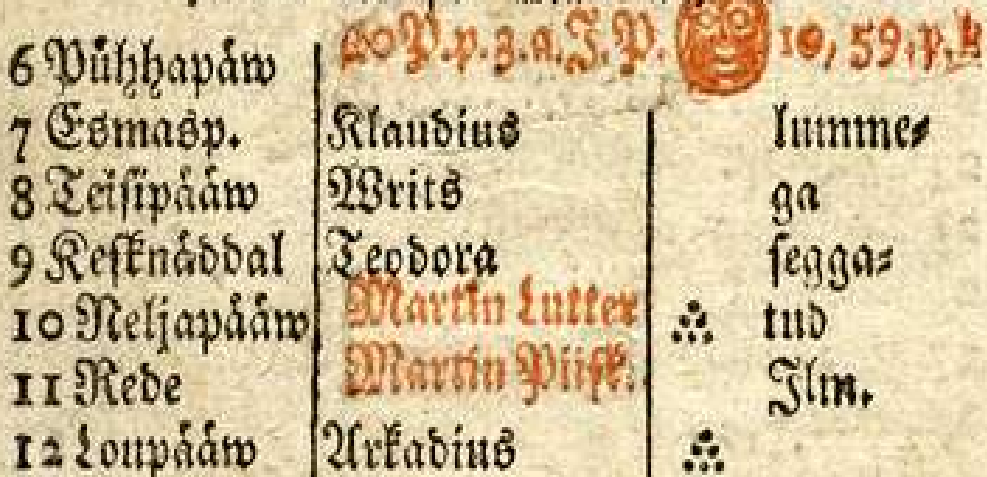 6 Pühhapäw 20 P. p. z. a. J. P. 10, 59. p. k
7 Esmasp. Klaudius lumme⸗
8 Teisipääw Writs ga
9 Kesknäddal Teodora segga⸗
10 Neljapääw Martin Lutter tud
11 Rede Martin Piisk. Jlm.
12 Loupääw Arkadius